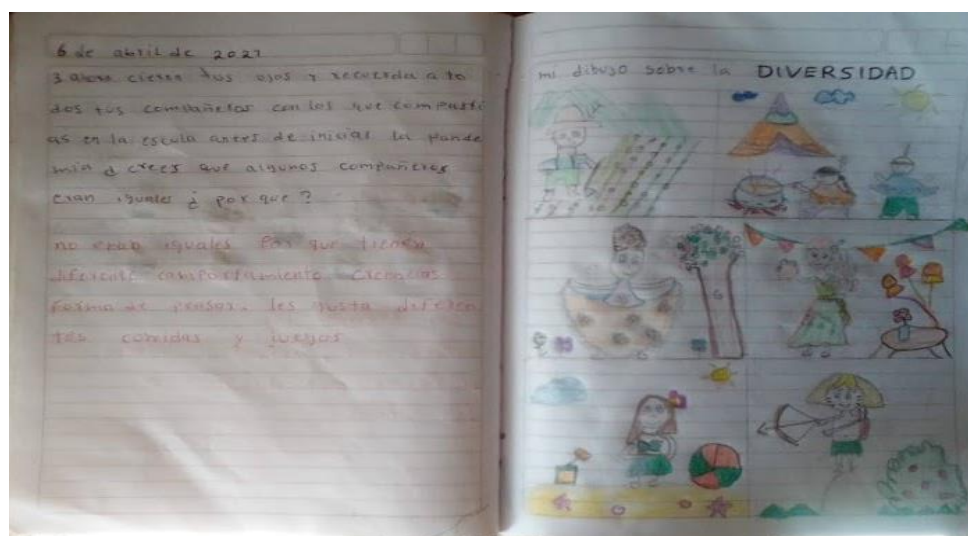 6 de abril de 2021
3 ahora cierra tus ojos y recuerda a to
dos tus compañeros con los que comparti
as en la escula antes de iniciar la pande
mia ¿ crees que algunos compañeros
eran iguales ¿ por que ?
no eran iguales Por que tienen
diferente comportamiento. creencias
forma de pensar. les gusta diferen
tes comidas y juegos
mi dibujo sobre la DIVERSIDAD